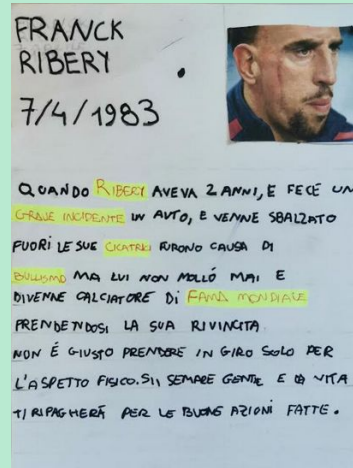 FRANCK
RIBERY
7/4/1983
QUANDO RIBERY AVEVA 2 ANNI, E FECE UN
GRAVE INCIDENTE IN AUTO, E VENNE SBALZATO
FUORI LE SUE CICATRICI FURONO CAUSA DI
BULLISMO MA LUI NON MOLLÓ MAI E
DIVENNE CALCIATORE DI FAMA MONDIALE
PRENDENDOSI LA SUA RIVINCITA
NON É GIUSTO PRENDERE IN GIRO SOLO PER
L'ASPETTO FISICO. SII SEMPRE GENTIL E VITA
TI RIPAGHERÁ PER LE BUONE AZIONI FATTE.